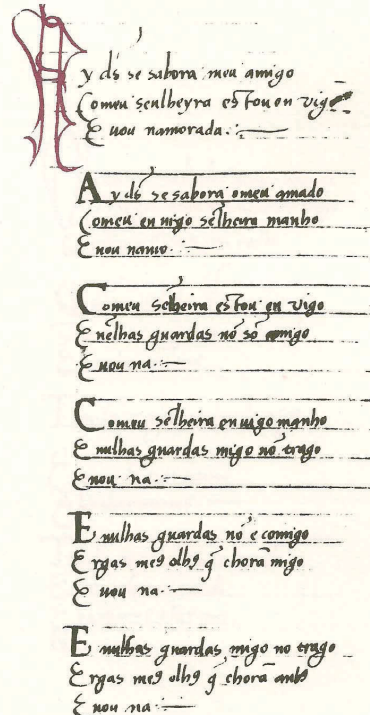 Ay d̄s se sabora meu amigo
Comeu senlheyra estou en vigo
E uou namorada.
Ay d̄s se sabora omeu amado
Comeu en uigo sēlheira manho
E uou namo.
Comeu sēlheira estou en vigo
E nēlhas guardas nō sō comigo
E uou na.
Comeu sēlheira en uigo manho
E nulhas guardas migo nō trago
E uou na.
E nulhas guardas nō e comigo
Ergas meꝯ olhꝯ q̄ chorā migo
E uou na.
E nulhas guardas migo no trago
Ergas meꝯ olhꝯ q̄ chorā anbꝯ
E uou na.